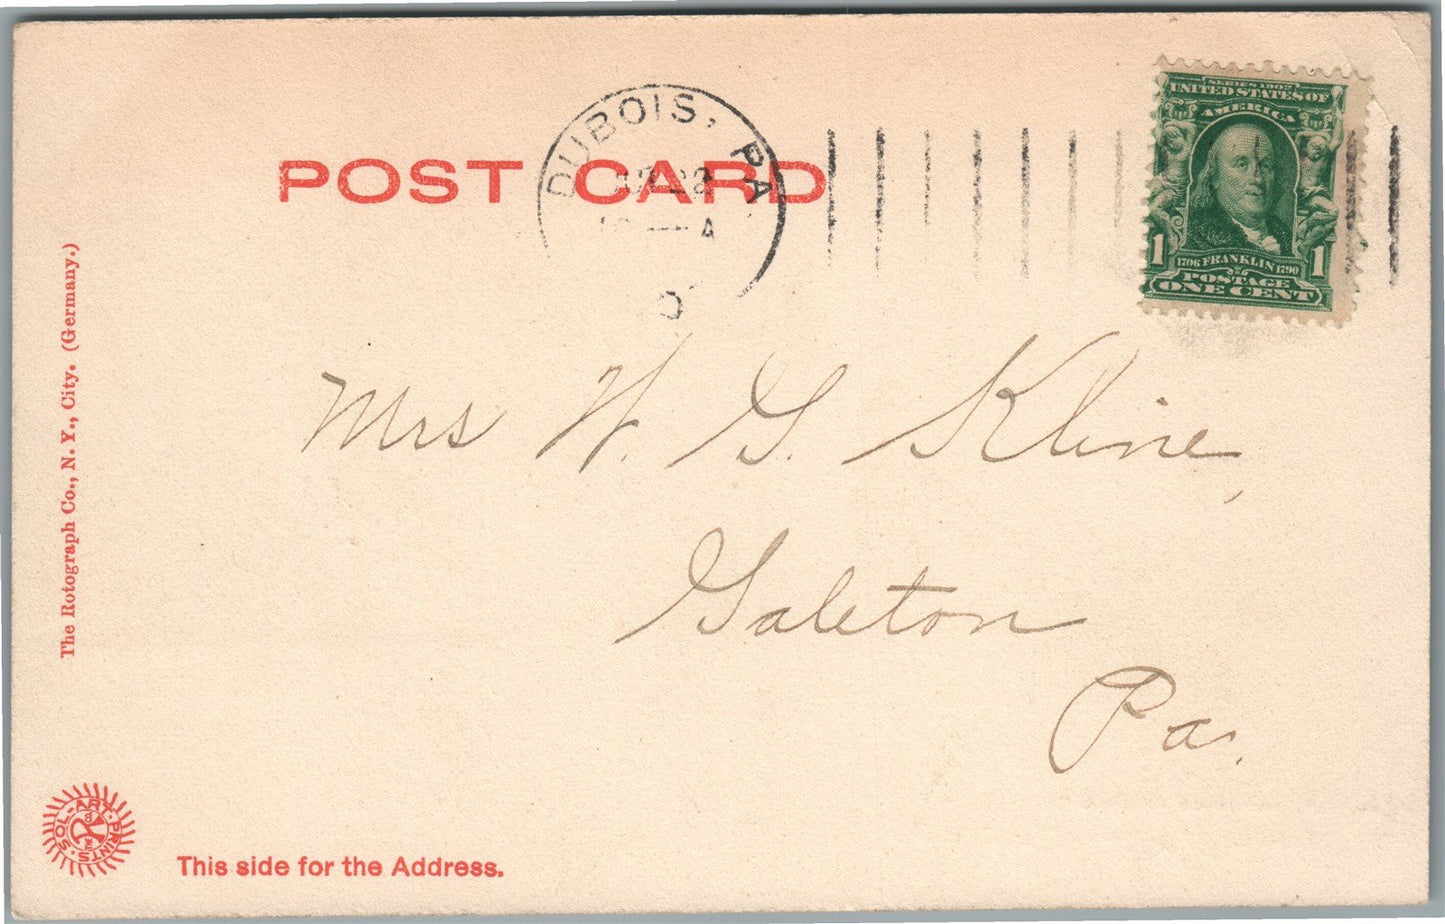 POST CARD
DUBOIS, PA
A
SERIES 1902
UNITED STATES OF
AMERICA
1706 FRANKLIN 1790
1 1
POSTAGE
ONE CENT
Mrs W. G. Kline,
Galeton
Pa.
The Rotograph Co., N. Y., City. (Germany.)
SOL-ART PRINTS
This side for the Address.